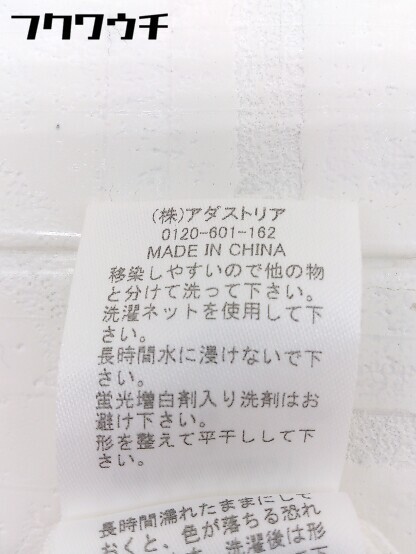 フクワウチ
(株)アダストリア
0120-601-162
MADE IN CHINA
移染しやすいので他の物
と分けて洗って下さい。
洗濯ネットを使用して下
さい。
長時間水に浸けないで下
さい。
蛍光増白剤入り洗剤はお
避け下さい。
形を整えて平干しして下
さい。
長時間濡れたままにして
おくと、色が落ちる恐れ
洗濯後は形